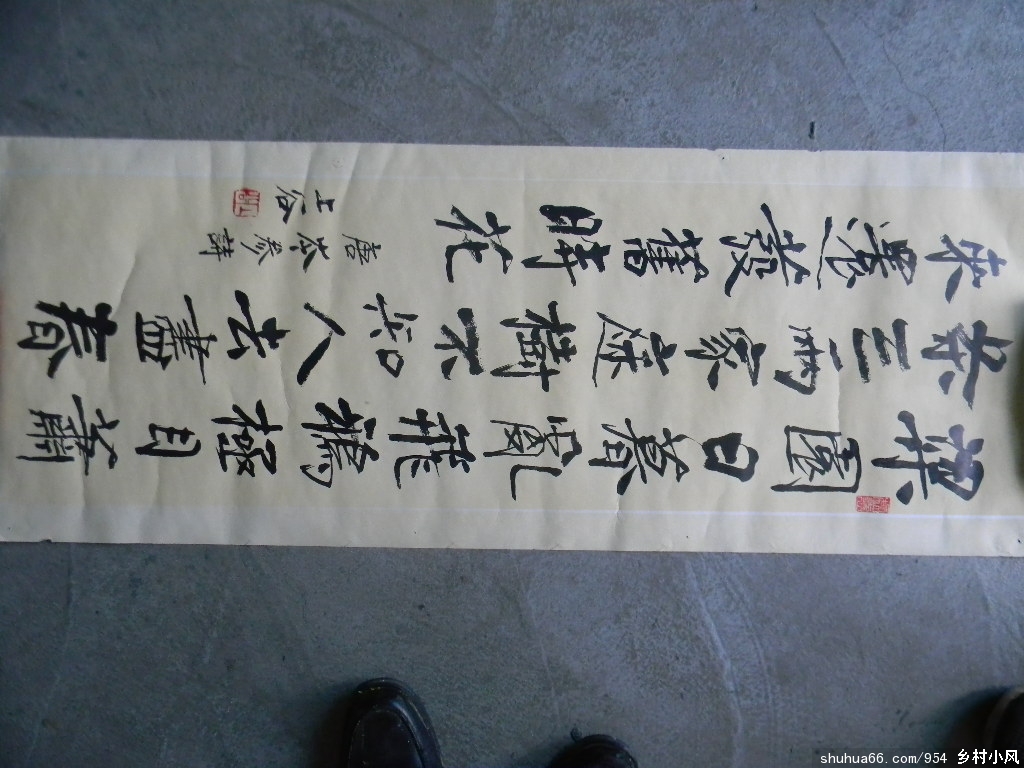 梁園日暮亂飛鴉極目蕭
条三兩家庭樹不知人去盡春
來還發舊時花
唐岑參詩
上谷
shuhua66.com/954 乡村小风